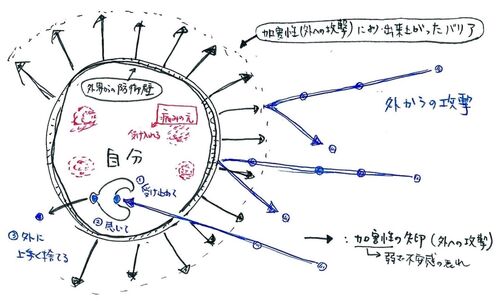 加害性(外への攻撃)により出来上がったバリア
外界からの防御壁
外からの攻撃
痛みの元
受け入れる
自分
① 受け止めて
② 流して
③ 外に
上手く捨てる
→ : 加害性の矢印(外への攻撃)
↳ 弱さ・不安感の表れ